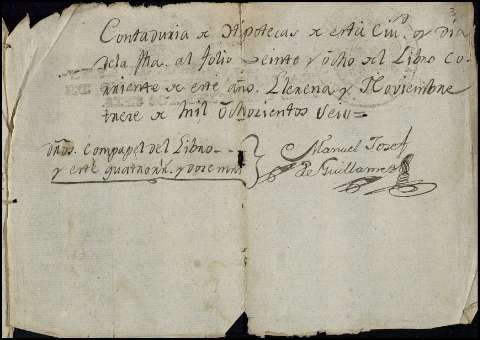 Contaduria de Hipotecas de esta Ciu.d oy dia
de la fha. al folio veinte y ocho del Libro co-
rriente de este año. Llerena y Noviembre
trece de mil ochozientos seis=
Dros. con papel del Libro--
y este quatro rr. y doze mrs
Manuel Josef
de Guillamet